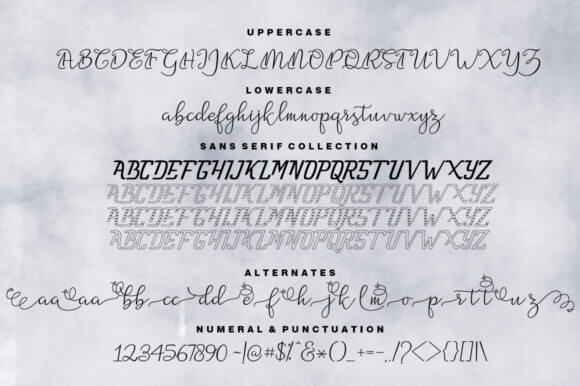 UPPERCASE
ABCDEFGHIJKLMNOPQRSTUVWXYZ
LOWERCASE
abcdefghijklmnopqrstuvwxyz
SANS SERIF COLLECTION
ABCDEFGHIJKLMNOPQRSTUVWXYZ
ABCDEFGHIJKLMNOPQRSTUVWXYZ
ABCDEFGHIJKLMNOPQRSTUVWXYZ
ABCDEFGHIJKLMNOPQRSTUVWXYZ
ALTERNATES
aa aa bb cc dd e f h j k l m o p r t t u z
NUMERAL & PUNCTUATION
1234567890 ~|@#$%^&*()_+=-,./?<>{}[]|\